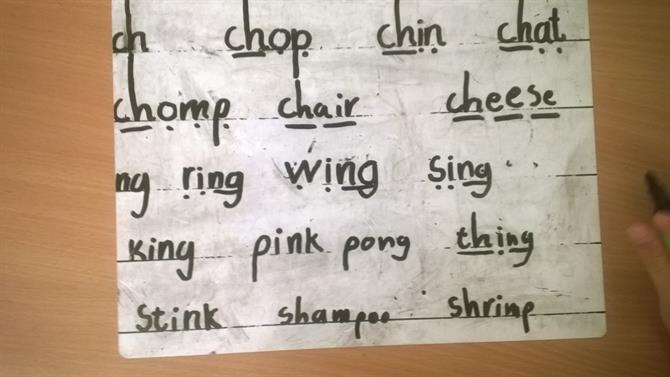 ch chop chin chat
chomp chair cheese
ng ring wing sing
king pink pong thing
stink shampoo shrimp